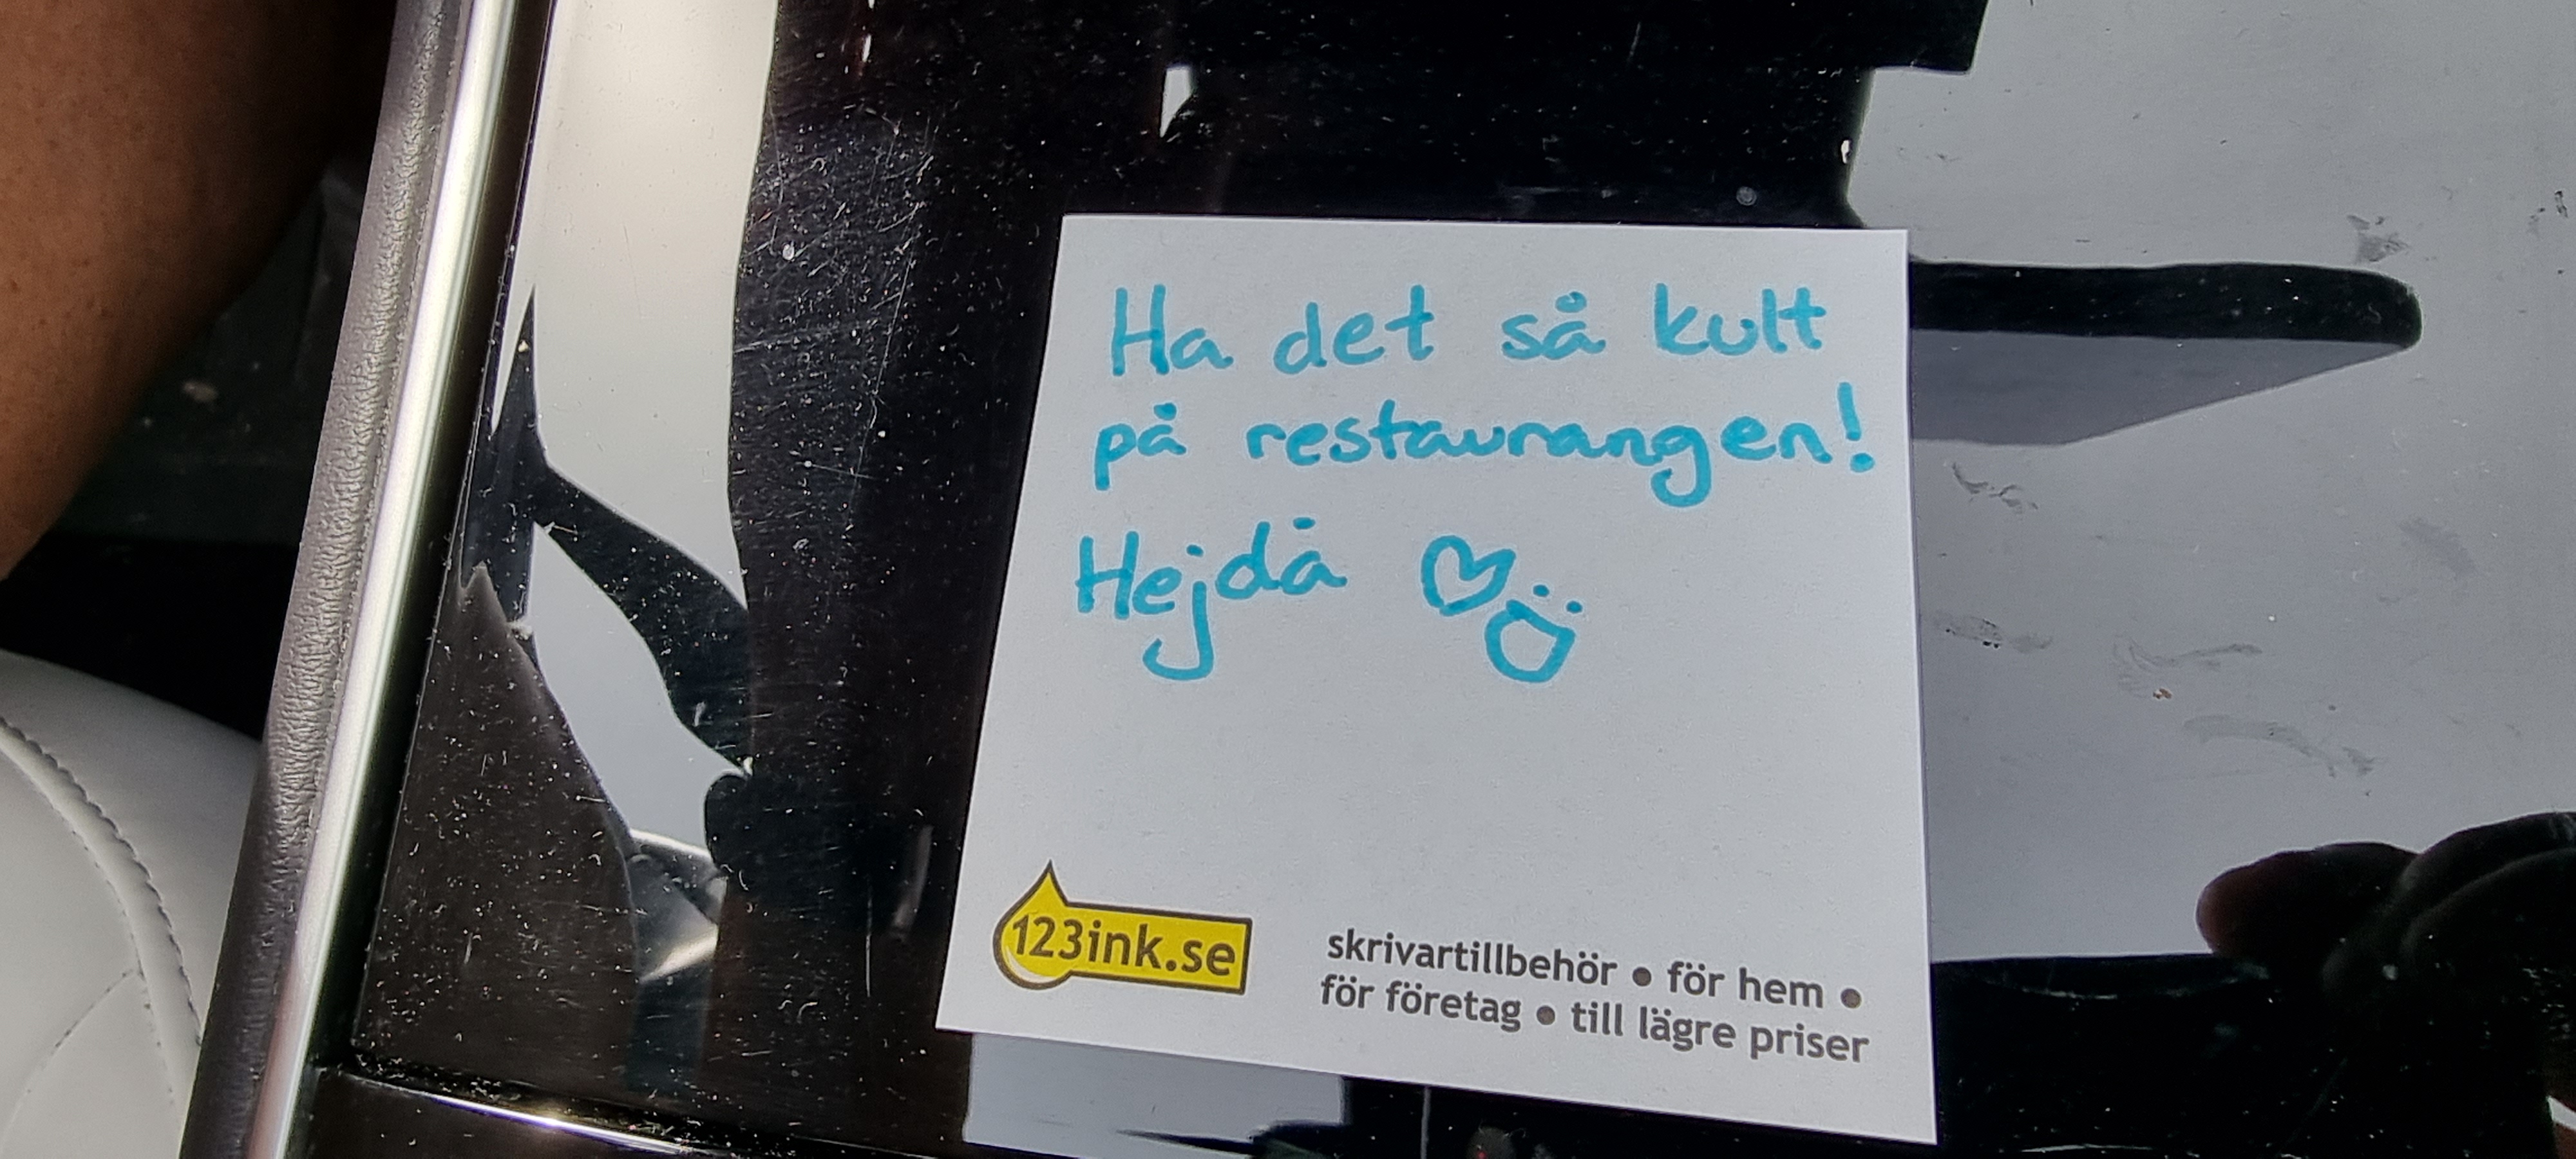 Ha det så kult
på restaurangen!
Hejdå ♡
123ink.se
skrivartillbehör • för hem •
för företag • till lägre priser